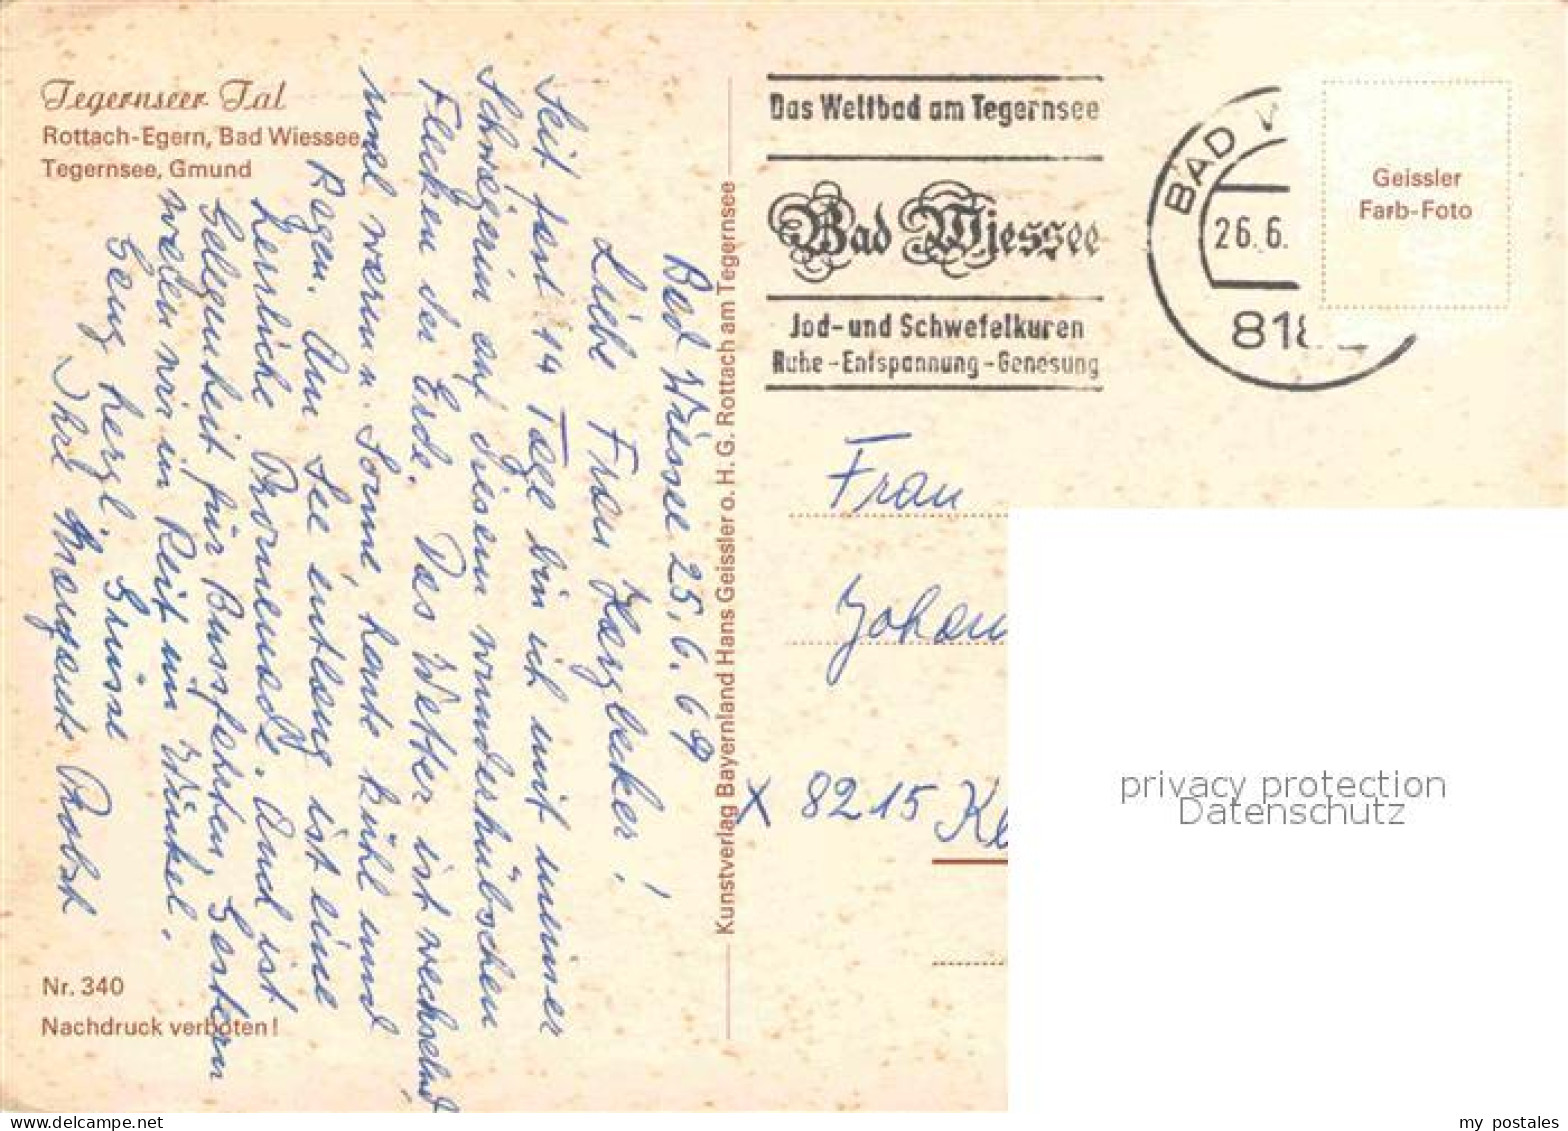 Tegernseer Tal
Rottach-Egern, Bad Wiessee,
Tegernsee, Gmund
Bad Wiessee 25.6.69
Liebe Frau Harzbecker!
Seit fast 14 Tage bin ich mit meiner
Schwägerin auf diesem wunderhübschen
Flecken der Erde. Das Wetter ist wechselnd,
mal warm u. Sonne, heute kühl und
Regen. Am See entlang ist eine
herrliche Promenade. Auch ist
Gelegenheit für Busfahrten, Gestern
waren wir in Reit im Winkel.
Ganz herzl. Grüsse
Ihre Margarete Probst
Nr. 340
Nachdruck verboten!
Kunstverlag Bayernland Hans Geissler o. H. G. Rottach am Tegernsee
Das Weltbad am Tegernsee
Bad Wiessee
Jod- und Schwefelkuren
Ruhe - Entspannung - Genesung
BAD
26.6.
818
Geissler
Farb-Foto
Frau
Johan
x 8215 Ke
privacy protection
Datenschutz
my postales